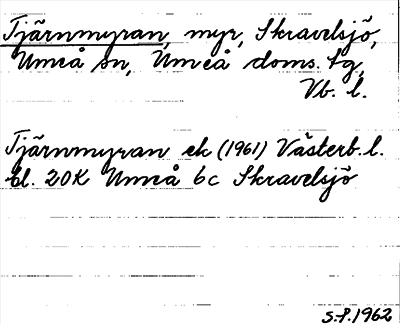 Tjärnmyran, myr, Skravelsjö,
Umeå sn, Umeå doms. tg,
Vb. l.
Tjärnmyran ek (1961) Västerb. l.
bl. 20K Umeå 6c Skravelsjö
S.P. 1962